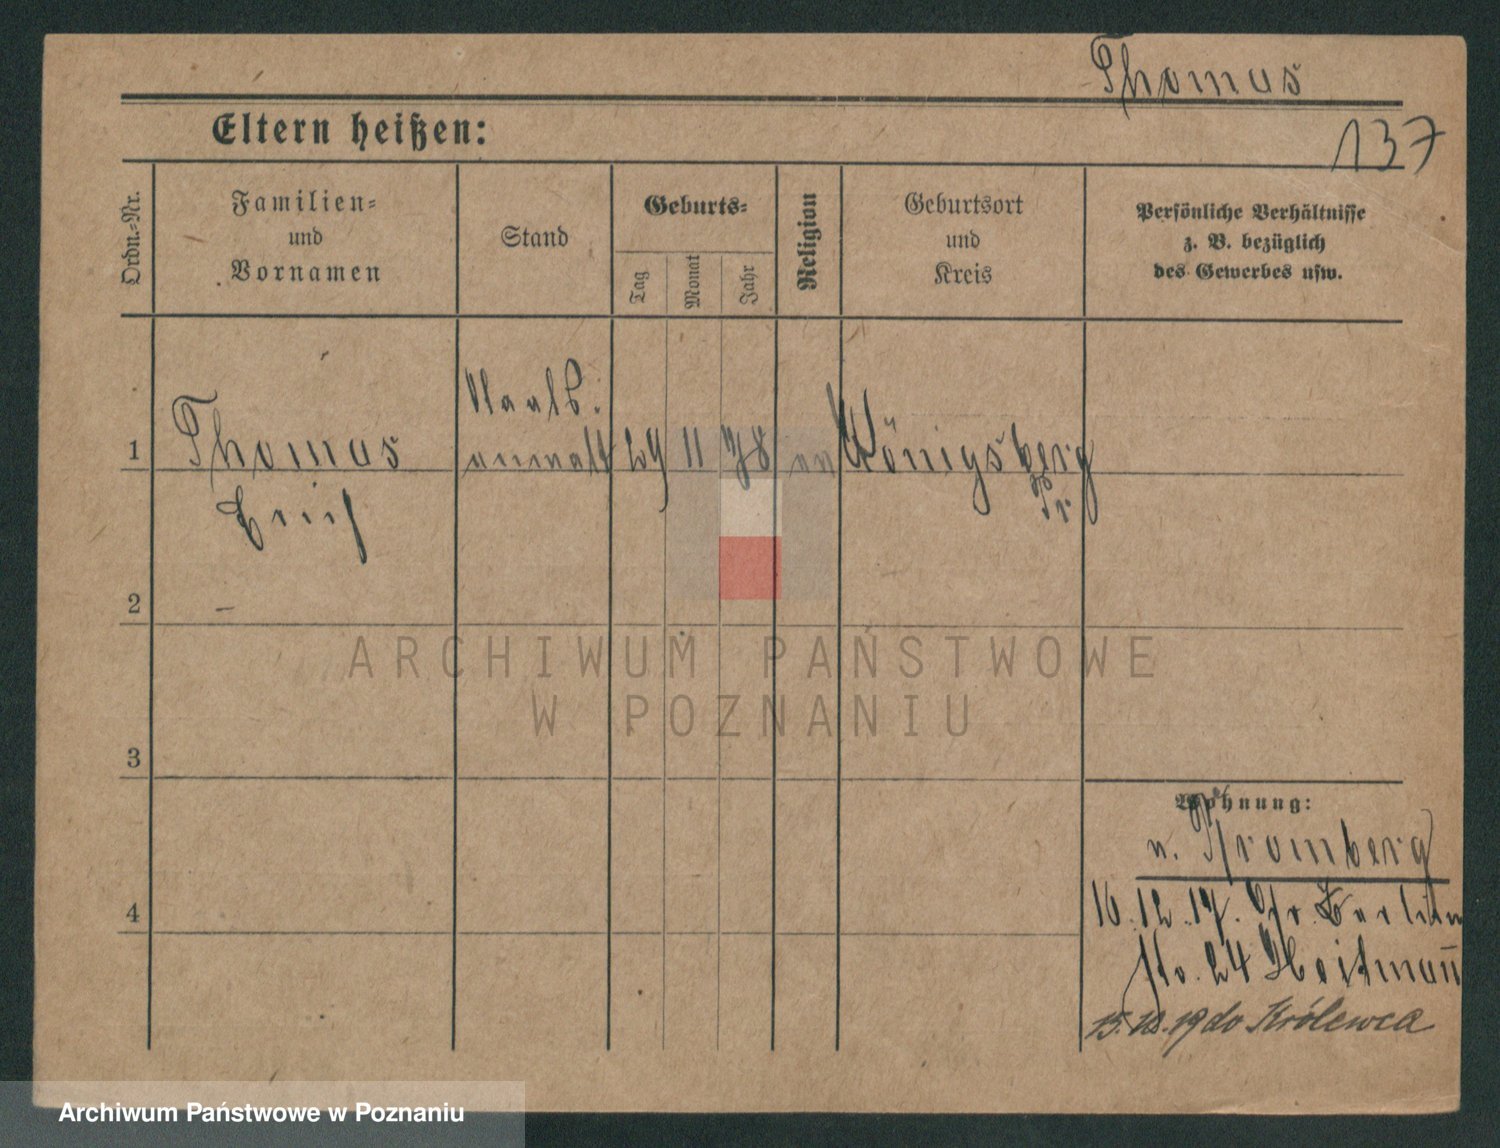 Thomas
137
Eltern heißen:
Ordn.-Nr.
Familien-
und
Vornamen
Stand
Geburts-
Tag
Monat
Jahr
Religion
Geburtsort
und
Kreis
Persönliche Verhältnisse
z. B. bezüglich
des Gewerbes usw.
1
Thomas
Erich
Staats-
anwalt
29
11
78
ev
Königsberg
Pr
2
3
4
Wohnung:
v. Bromberg
16.12.17. Gr. Berliner
Str. 24 Heitmann
15.10.19 do Królewca
ARCHIWUM PAŃSTWOWE
W POZNANIU
Archiwum Państwowe w Poznaniu